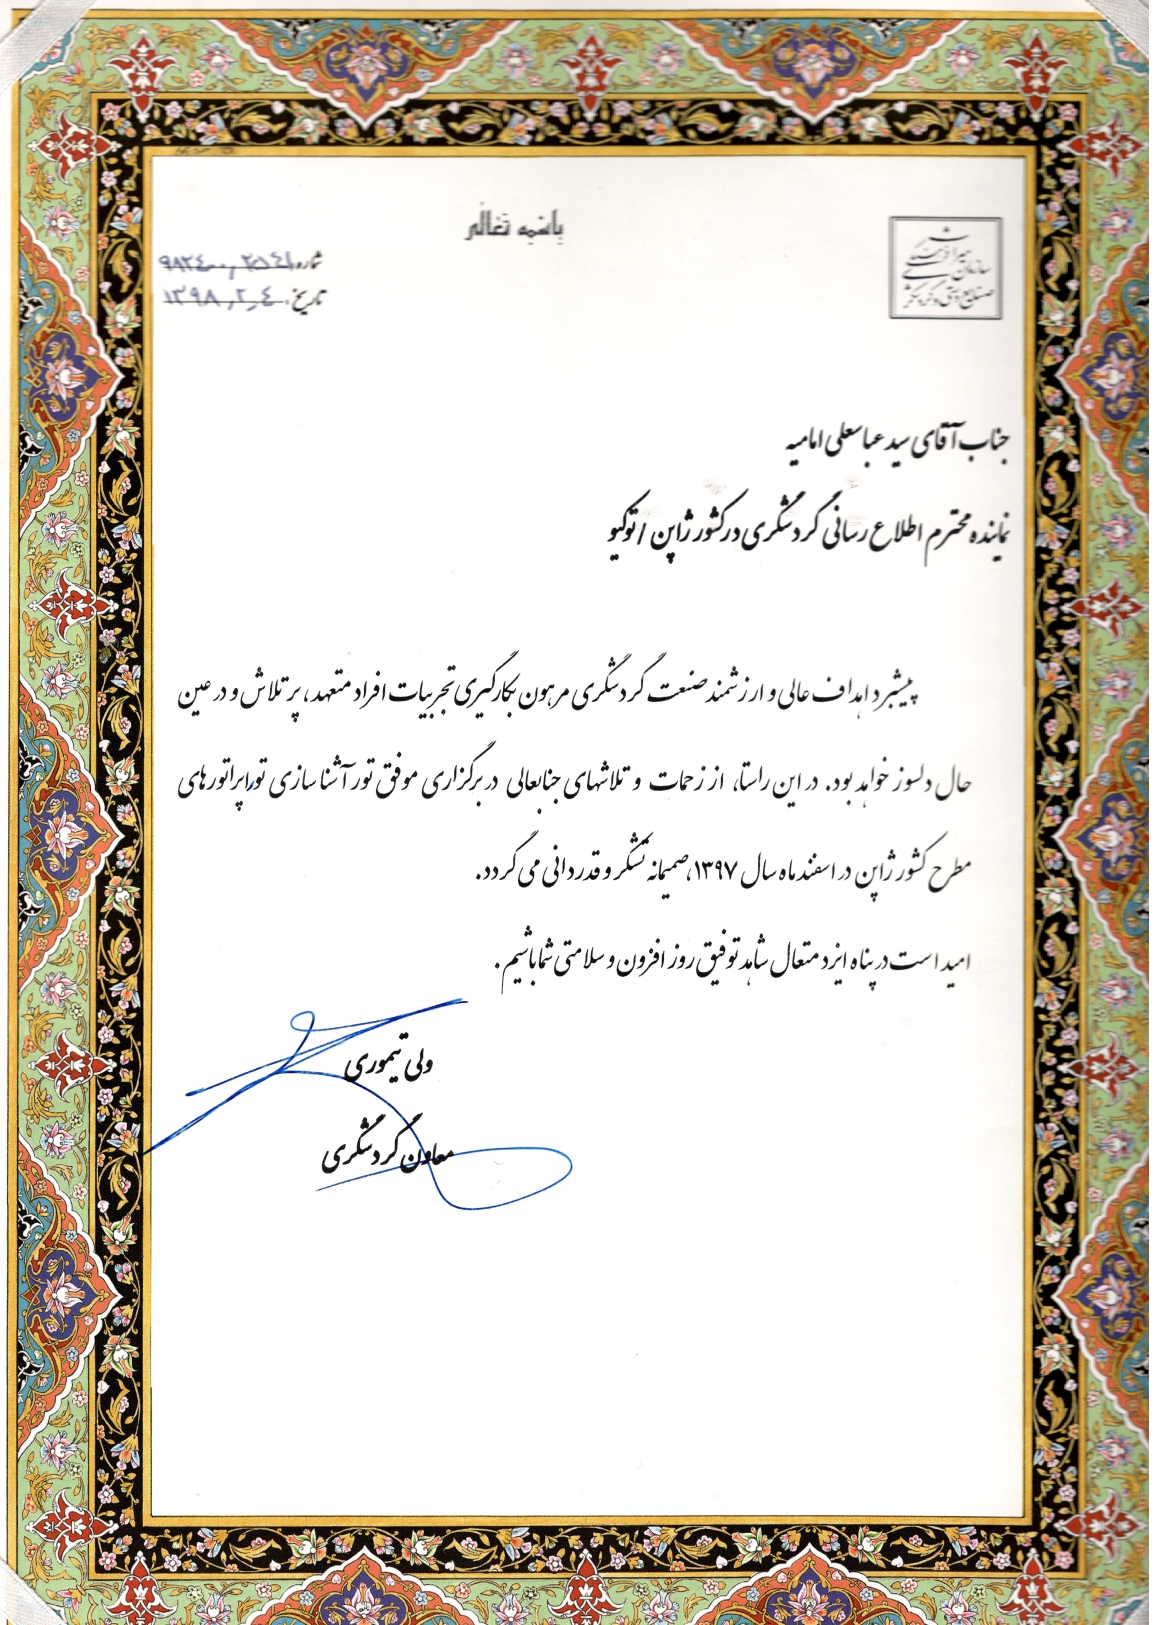 باسمه تعالی
سازمان میراث فرهنگی
صنایع دستی و گردشگری
شماره:
تاریخ: ۱۳۹۸٫۲٫۴
جناب آقای سید عباسعلی امامیه
نماینده محترم اطلاع رسانی گردشگری در کشور ژاپن / توکیو
پیشبرد اهداف عالی و ارزشمند صنعت گردشگری مرهون بکارگیری تجربیات افراد متعهد، پر تلاش و در عین
حال دلسوز خواهد بود. در این راستا، از زحمات و تلاشهای جنابعالی در برگزاری موفق تور آشنا سازی توراپراتورهای
مطرح کشور ژاپن در اسفند ماه سال ۱۳۹۷، صمیمانه تشکر و قدردانی می گردد.
امید است در پناه ایزد متعال شاهد توفیق روز افزون و سلامتی شما باشیم.
ولی تیموری
معاون گردشگری